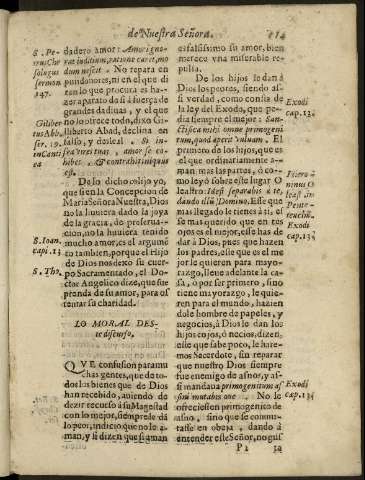 de Nuestra Señora.
114
S. Pe-
trus Che
solugus
sermon
147.
Giliber
tus Abb.
ser. 19.
in Canti
ca
S. Ioan.
capi. 13
S. Tho.
dadero amor: Amor igno-
rat iuditium, ratione caret, mo
dum nescit. No repara en
pundonores, ni en el que di
ran lo que procura es ha-
zer aparato de si à fuerça de
grandes dadiuas, y el que
no lo ofrece todo, dixo Gi-
liberto Abad, declina en
falso, y desleal. Si in-
amor se co-
hibet
& contrahit iniquus
est.
Da lo dicho colijo yo,
que si en la Concepcion de
Maria Señora Nuestra, Dios
no la huuiera dado la joya
de la gracia, de preserua-
cion, no la huuiera tenido
mucho amor, es el argumẽ
to tambien, porque el Hijo
de Dios nos dexò su cuer-
po Sacramentado, el Do-
ctor Angelico dize, que sue
prenda de su amor, para os
tentar su charidad.
LO MORAL DES-
te discurso.
QVE confusion para mu
chas gentes, que de to-
dos los bienes que de Dios
han recebido, auiendo de
dezir recurso à su Magestad
con lo mejor, siempre dà
lo peor, indicio que no le a-
man, y si dizen que si aman
es falsissimo su amor, bien
merece vna miserable re-
pulsa.
De los hijos le dan à
Dios los peores, siendo as-
si verdad, como consta de
la ley del Exodo, que pe-
dia siempre el mejor: San-
ctifica mihi omne primogeni
tum, quod aperit vuluam. El
primero de los hijos, que es
el que ordinariamente a-
man mas las partes, ò co-
mo leyò sobre este lugar O
leastro: Idest separabis à te,
dandũ illũ Domino. Esse que
mas llegado le tienes à ti, el
se mas querido que de ente
tos es el mejor, esse has de
dar à Dios, pues que hazen
los padres, el le que es el me
jor le quieren para mayo-
razgo, lleue adelante la ca-
sa, ò por ser primero, sino
tiene mayorazgo, le quie-
ren para el mundo, hazien
dole hombre de papeles, y
negocios, à Dios le dan los
hijos cojos, ò necios, dizen,
esse que sabe poco, le hare-
mos Sacerdote, sin reparar
que nuestro Dios siempre
fue enemigo de asnos, y as-
si mandaua primogenitum as
sini mutabis oue. No le
ofreciessen primogenito de
asno, sino que se commu-
tasse en obeja, dando à
entender este Señor, no gus
Exodi
cap. 13.
Exodi
cap. 13.
Exodi
cap. 13.
P 2
ta